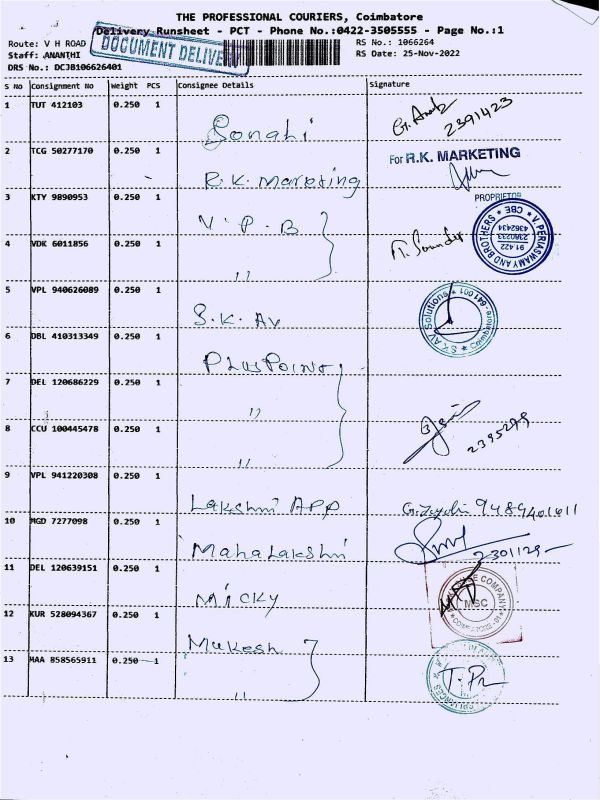 THE PROFESSIONAL COURIERS, Coimbatore
Delivery Runsheet - PCT - Phone No.:0422-3505555 - Page No.:1
Route: V H ROAD
RS No.: 1066264
Staff: ANANTHI
RS Date: 25-Nov-2022
DRS No.: DCJB106626401
DOCUMENT DELIVE
S No Consignment No Weight PCS Consignee Details Signature
1 TUT 412103 0.250 1 Sonahi
2391423
2 TCG 50277170 0.250 1 R.K. Marketing
For R.K. MARKETING
PROPRIETOR
3 KTY 9890953 0.250 1 V.P.B
V. PERIASWAMY AND BROTHERS * CBE *
91.422
2380233
4382434
4 VDK 6011856 0.250 1 "
5 VPL 940626089 0.250 1 S.K. AV
S K AV Solutions * Coimbatore - 641 001 *
6 DBL 410313349 0.250 1 PlusPoint
7 DEL 120686229 0.250 1 "
8 CCU 100445478 0.250 1 "
2395279
9 VPL 941220308 0.250 1 Lakshmi APP
9489401611
10 MGD 7277098 0.250 1 Mahalakshmi
2301129
11 DEL 120639151 0.250 1 Micky
COMPANY
MSC
12 KUR 528094367 0.250 1 Mukesh
13 MAA 858565911 0.250 1 "